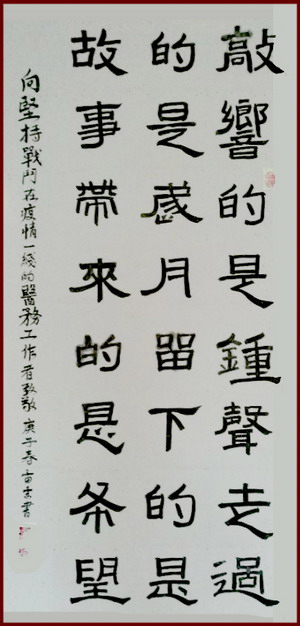 敲響的是鍾聲走過
的是歲月留下的是
故事帶來的是希望
向堅持戰鬥在疫情一綫的醫務工作者致敬 庚子春書